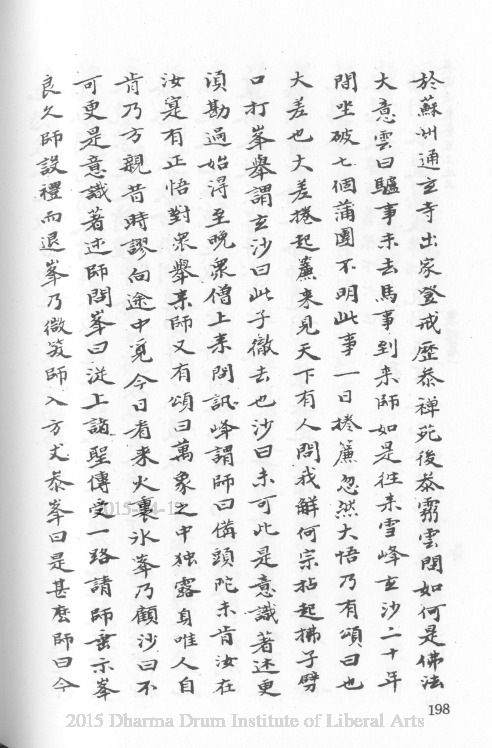 於蘇州通玄寺出家登戒歷叅禪苑後叅靈雲問如何是佛法
大意雲曰驢事未去馬事到来師如是徃来雪峰玄沙二十年
間坐破七個蒲團不明此事一日捲簾忽然大悟乃有頌曰也
大差也大差捲起簾来見天下有人問我解何宗拈起拂子劈
口打峯舉謂玄沙曰此子徹去也沙曰未可此是意識著述更
湏勘過始淂至晚衆僧上来問訊峰謂師曰俻頭陀未肯汝在
汝寔有正悟對衆舉来師又有頌曰萬象之中独露身唯人自
肯乃方親昔時謬向途中覓今日看来火裏氷峯乃顧沙曰不
可更是意識著述師問峯曰従上諸聖傳受一路請師垂示峯
良久師設禮而退峯乃微笑師入方丈叅峯曰是甚麽師曰今
198
2015-11-12
2015 Dharma Drum Institute of Liberal Arts